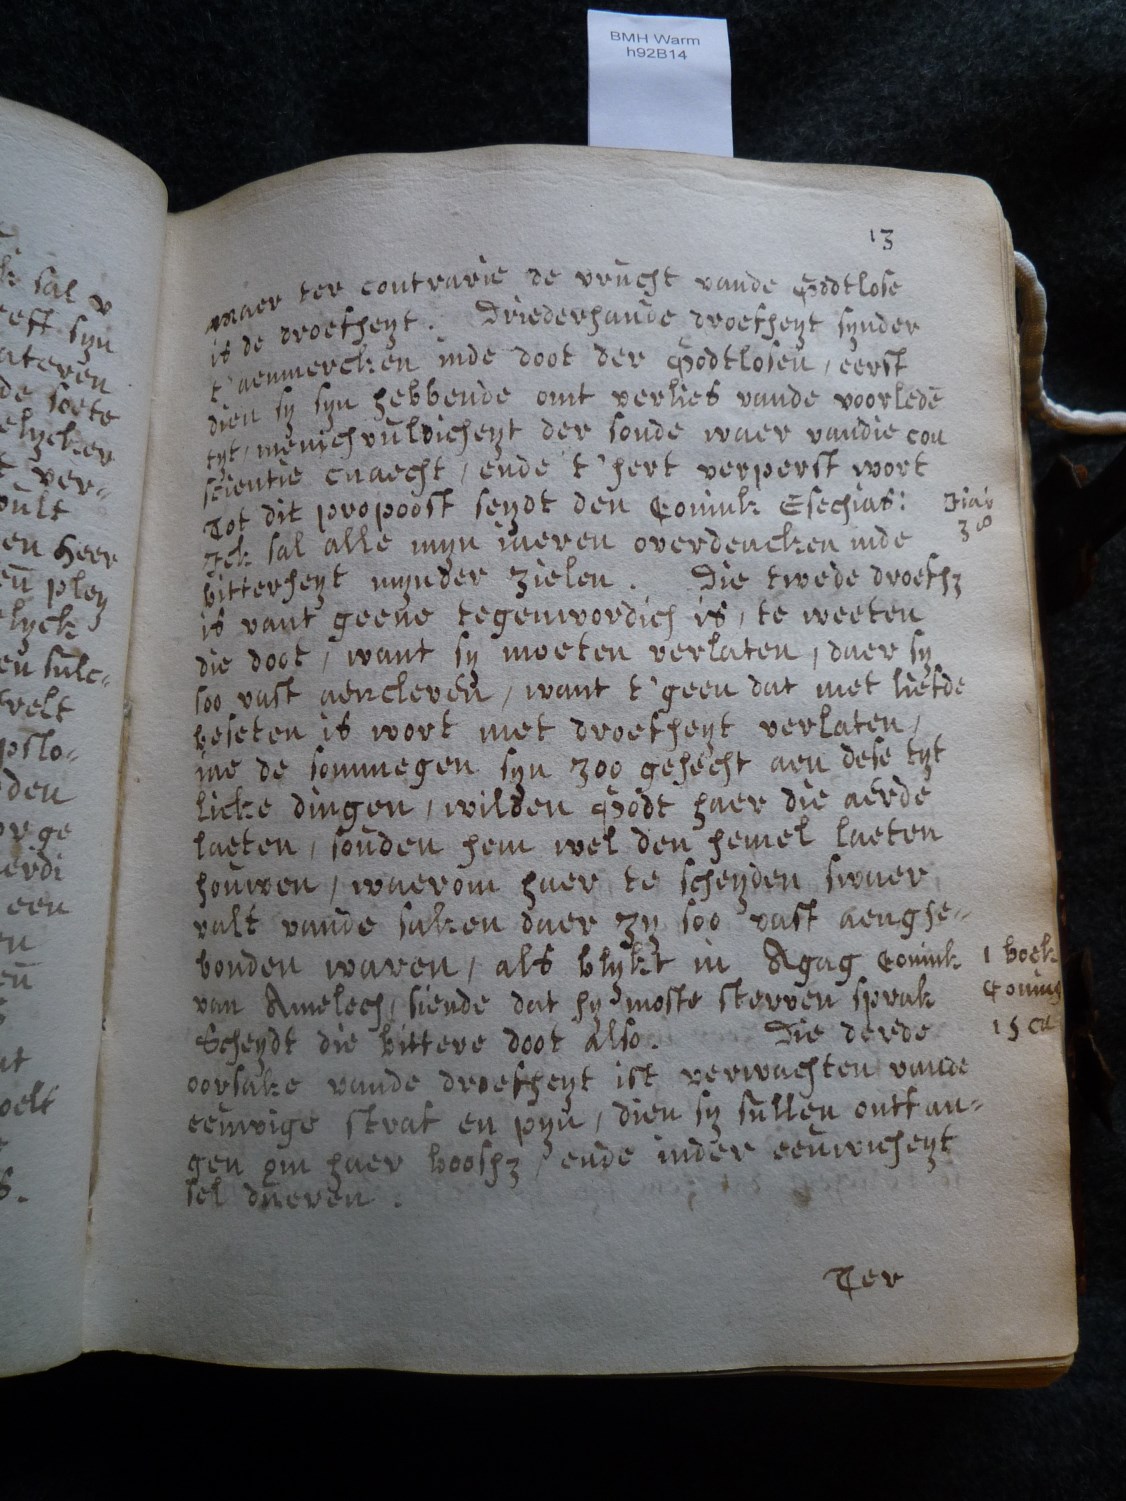 BMH Warm
h92B14
13
maer ter contrarie de vrucht vande Godtlose
is de droefheyt. Driederhande droefheyt synder
t'aenmercken inde doot der Godtlosen, eerst
dien sy syn hebbende omt verlies vande voorledē
tyt, menichvuldicheyt der sonde waer vandie con
scientie cnaecht, ende t'hert verperst wort
Tot dit propoost seydt den Conink Esechias:
Jsai
38
Jck sal alle myn iaeren overdencken inde
bitterheyt mynder zielen. Die twede droefhz
is vant geene tegenwordich is, te weeten
die doot, want sy moeten verlaten, daer sy
soo vast aencleven, want t'geen dat met liefde
beseten is wort met droefheyt verlaten,
me de sommegen syn zoo gehecht aen dese tyt
licke dingen, wilden Godt haer die aerde
laeten, souden hem wel den hemel laeten
houwen, waerom haer te scheyden swaer
valt vande saken daer zy soo vast aenghe-
bonden waren, als blykt in Agag Conink
1 boek
Coning
15 ca
van Amelech, siende dat hy moste sterven sprak
Scheydt die bittere doot also. Die derde
oorsake vande droefheyt ist verwachten vande
eeuwige straf en pyn, dien sy sullen ontfan-
gen om haer booshz, ende inder eeuwicheyt
sel dueren.
Ter
k sal v
eeft syn
ateren
de soete
elycker
t ver-
vult
en Heer
eū pley
lyck
en sulc-
welt
pslo-
den
or ge
eerdi
een
en
eū
at
oelt
s.